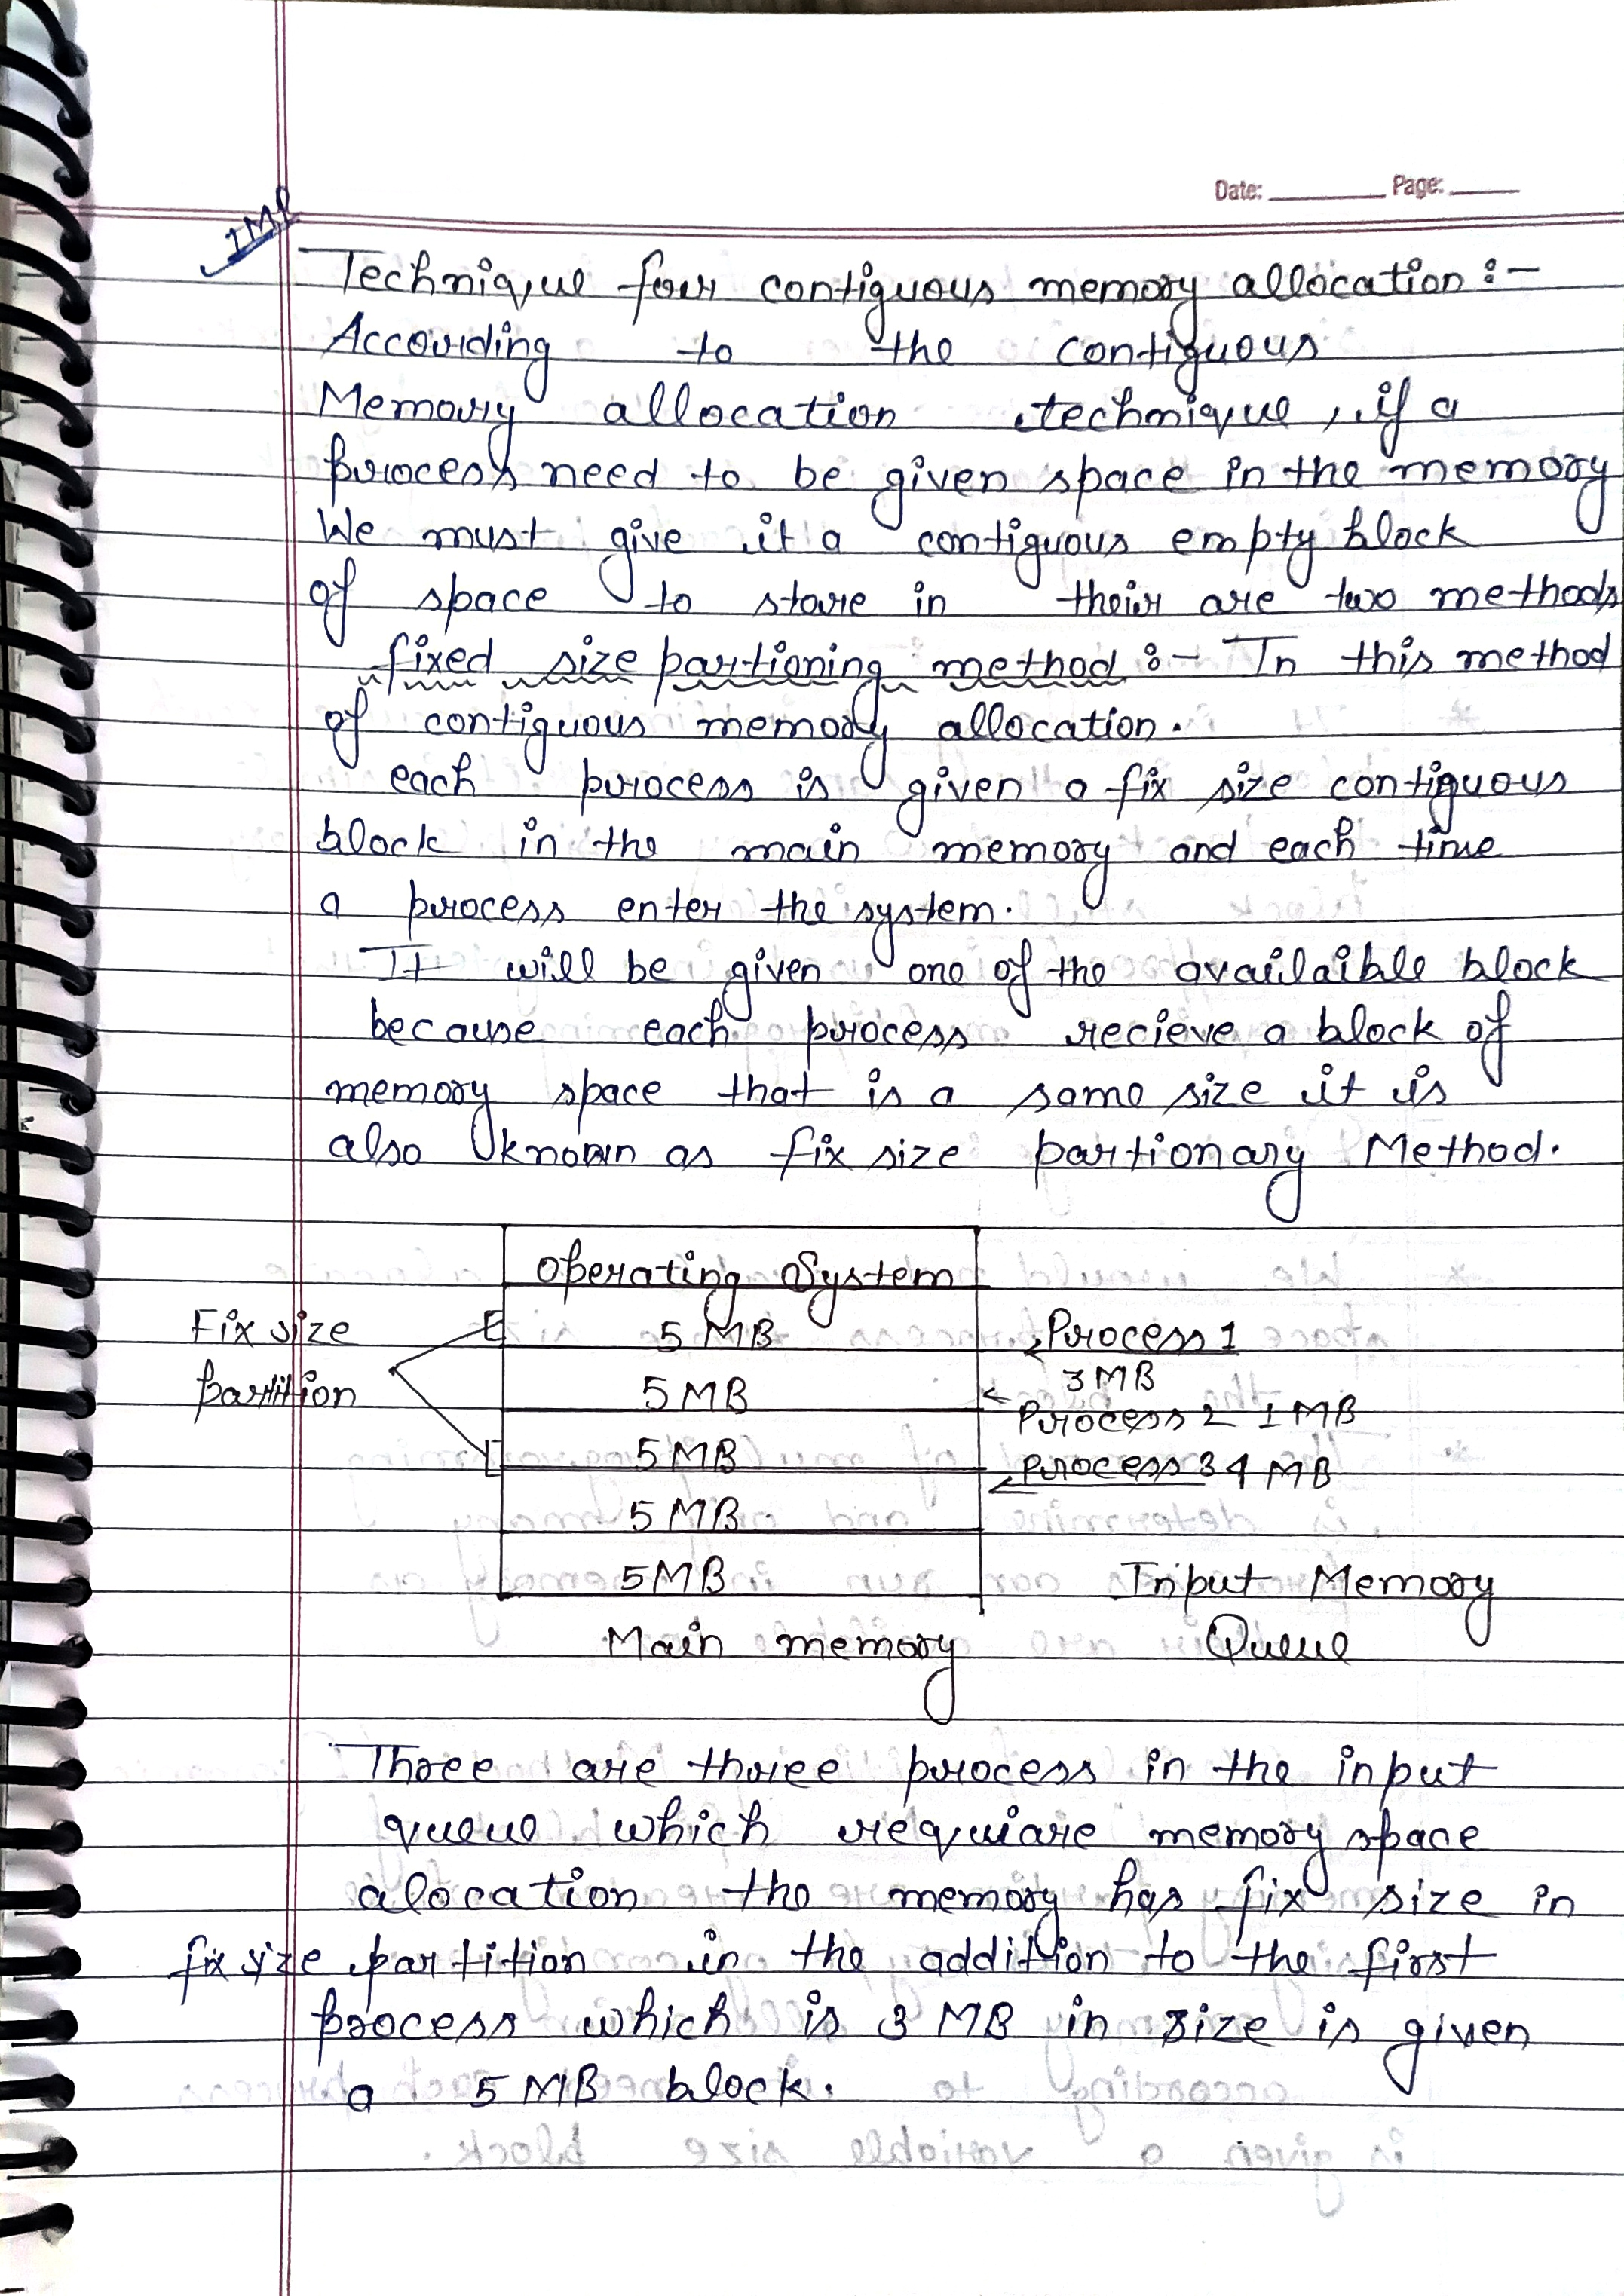 Date: Page:
IMP
Technique four contiguous memory allocation :-
Accouding to the contiguous
Memory allocation technique, if a
process need to be given space in the memory
We must give it a contiguous empty block
of space to store in their are two methods
fixed size partioning method :- In this method
of contiguous memory allocation.
each process is given a fix size contiguous
block in the main memory and each time
a process enter the system.
It will be given one of the availaible block
because each process recieve a block of
memory space that is a same size it is
also known as fix size partionary Method.
Operating System
Fix size 5 MB Process 1
partition 5 MB 3 MB
Process 2 1 MB
5 MB Process 3 4 MB
5 MB
5 MB Input Memory
Main memory Queue
Three are three process in the input
queue which requiare memory space
alocation the memory has fix size in
fix size partition in the addition to the first
process which is 3 MB in size is given
a 5 MB block.